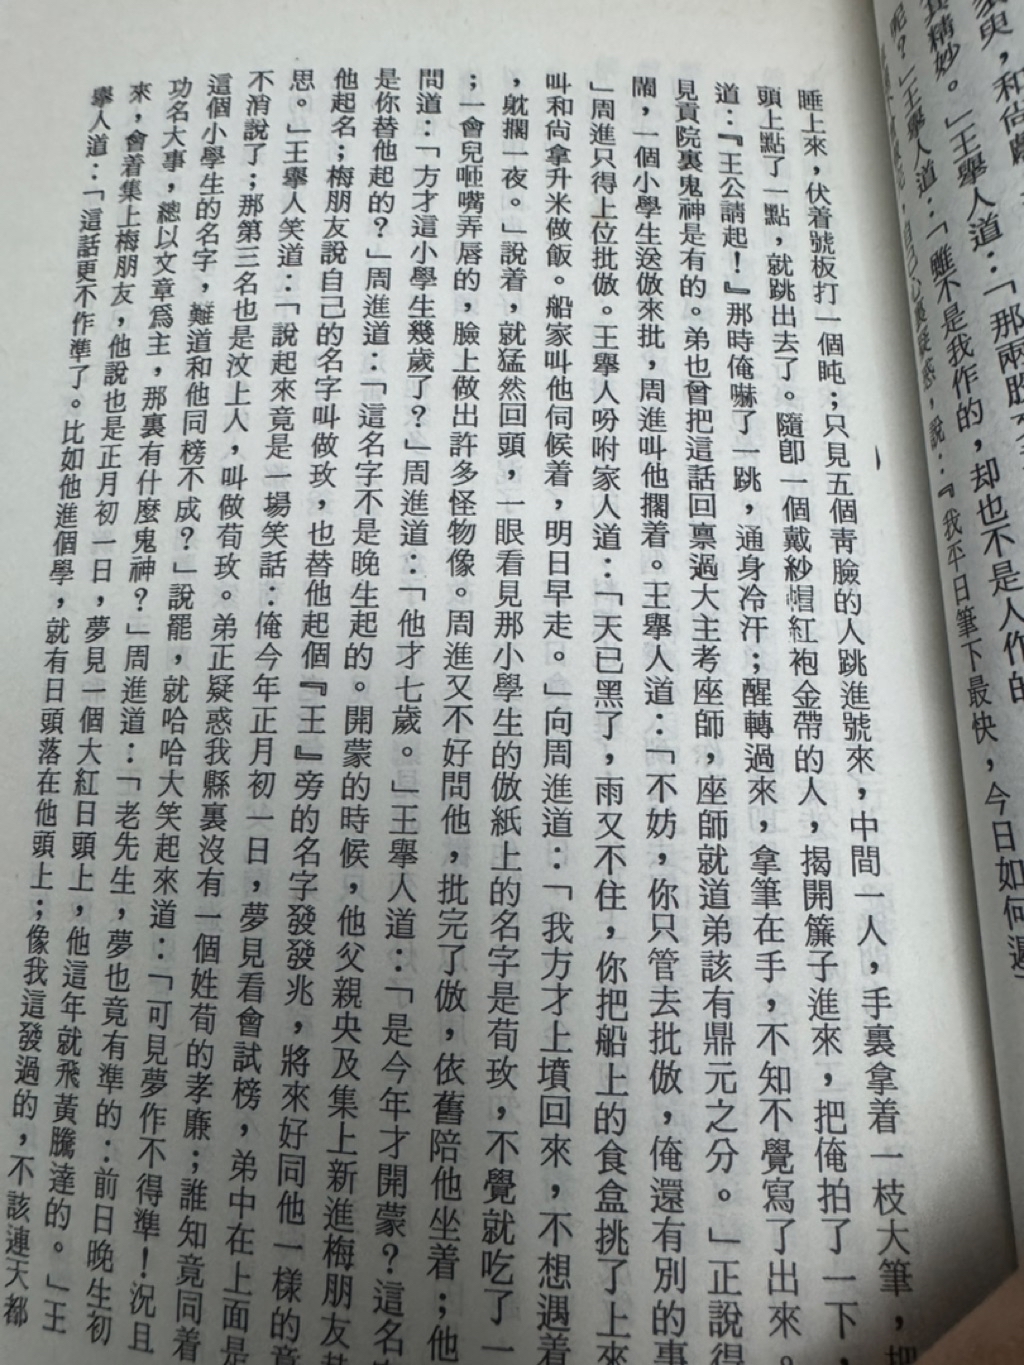 臾，和尚獻
其精妙。」王舉人道：「那兩股文
呢？」王舉人道：「雖不是我作的，却也不是人作的
說：『我平日筆下最快，今日如何遲
睡上來，伏着號板打一個盹；只見五個靑臉的人跳進號來，中間一人，手裏拿着一枝大筆，把
頭上點了一點，就跳出去了。隨卽一個戴紗帽紅袍金帶的人，揭開簾子進來，把俺拍了一下，
道：『王公請起！』那時俺嚇了一跳，通身冷汗；醒轉過來，拿筆在手，不知不覺寫了出來。
見貢院裏鬼神是有的。弟也曾把這話回禀過大主考座師，座師就道弟該有鼎元之分。」正說得
鬧，一個小學生送倣來批，周進叫他擱着。王舉人道：「不妨，你只管去批倣，俺還有別的事
」周進只得上位批倣。王舉人吩咐家人道：「天已黑了，雨又不住，你把船上的食盒挑了上來
叫和尚拿升米做飯。船家叫他伺候着，明日早走。」向周進道：「我方才上墳回來，不想遇着
，躭擱一夜。」說着，就猛然回頭，一眼看見那小學生的倣紙上的名字是荀玫，不覺就吃了一
；一會兒咂嘴弄唇的，臉上做出許多怪物像。周進又不好問他，批完了倣，依舊陪他坐着；他
問道：「方才這小學生幾歲了？」周進道：「他才七歲。」王舉人道：「是今年才開蒙？這名
是你替他起的？」周進道：「這名字不是晚生起的。開蒙的時候，他父親央及集上新進梅朋友
他起名；梅朋友說自己的名字叫做玫，也替他起個『王』旁的名字發發兆，將來好同他一樣的意
思。」王舉人笑道：「說起來竟是一場笑話：俺今年正月初一日，夢見看會試榜，弟中在上面是
不消說了；那第三名也是汶上人，叫做荀玫。弟正疑惑我縣裏沒有一個姓荀的孝廉；誰知竟同着
這個小學生的名字，難道和他同榜不成？」說罷，就哈哈大笑起來道：「可見夢作不得準！況且
功名大事，總以文章爲主，那裏有什麼鬼神？」周進道：「老先生，夢也竟有準的：前日晚生初
來，會着集上梅朋友，他說也是正月初一日，夢見一個大紅日頭上，他這年就飛黃騰達的。」王
舉人道：「這話更不作準了。比如他進個學，就有日頭落在他頭上；像我這發過的，不該連天都